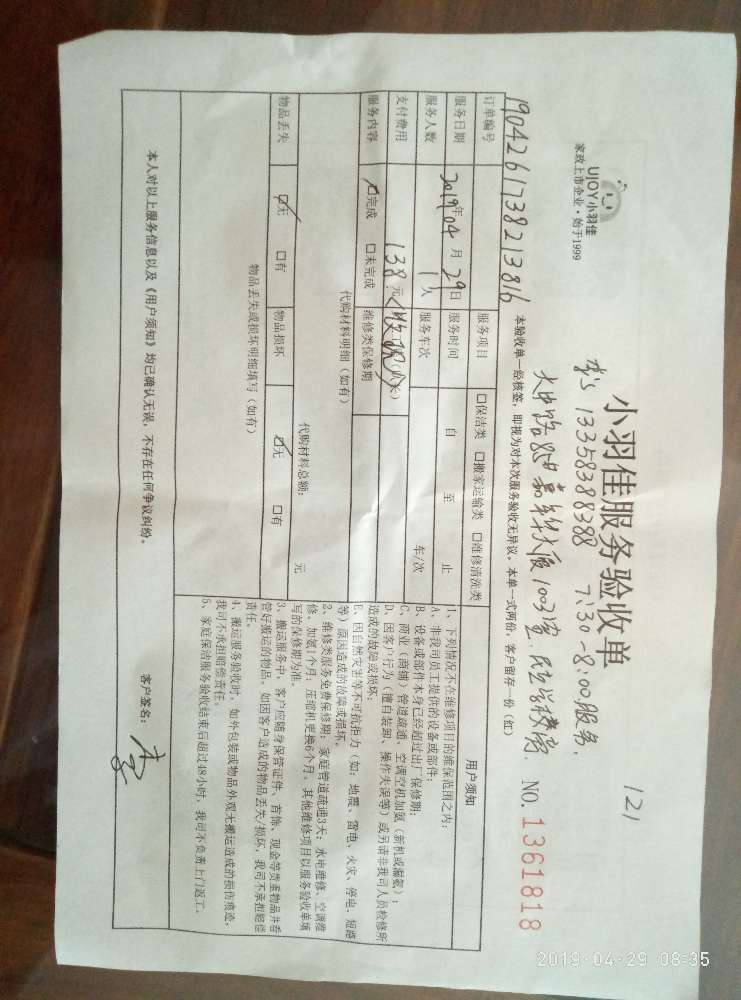 121
UJOY小羽佳
家政上市企业·始于1999
小羽佳服务验收单
13358388388 7:30-8:00服务.
1003室.
NO. 1361818
190426173821381б
本验收单一经核签,即视为对本次服务验收无异议。本单一式两份,客户留存一份(红)
订单编号 服务项目 口保洁类 口搬家运输类 口维修清洗类
服务日期 2019年04月29日 服务时间 自 至 止
服务人数 1人 服务车次 车/次
支付费用 138元
服务内容 口完成 口未完成 维修类保修期
代购材料明细(如有)
代购材料总额: 元
物品丢失 口无 口有 物品损坏 口无 口有
物品丢失或损坏明细填写(如有)
用户须知
1、下列情况不在维修项目的维保范围之内:
A、非我司员工提供的设备或部件;
B、设备或部件本身已经超过出厂保修期;
C、商业(商铺)管道疏通、空调空机加氨(新机或漏氨);
D、因客户行为(擅自装卸、操作失误等)或另请非我司人员检修所
造成的故障或损坏;
E、因自然灾害等不可抗拒力(如:地震、雷电、火灾、停电、短路
等)原因造成的故障或损坏。
2、维修类服务免费保修期:家庭管道疏通3天;水电维修、空调维
修、加氨1个月;压缩机更换6个月。其他维修项目以服务验收单填
写的保修期为准。
3、搬运服务中,客户应随身保管证件、首饰、现金等贵重物品并看
管好搬运的物品,如因客户造成的物品丢失/损坏,我司不承担赔偿
责任。
4、搬运服务验收时,如外包装或物品外观无搬运造成的损伤痕迹,
我司不承担赔偿责任。
5、家庭保洁服务验收结束后超过48小时,我司不负责上门返工。
本人对以上服务信息以及《用户须知》均已确认无误,不存在任何争议纠纷。
客户签名:
2019-04-29 08:35